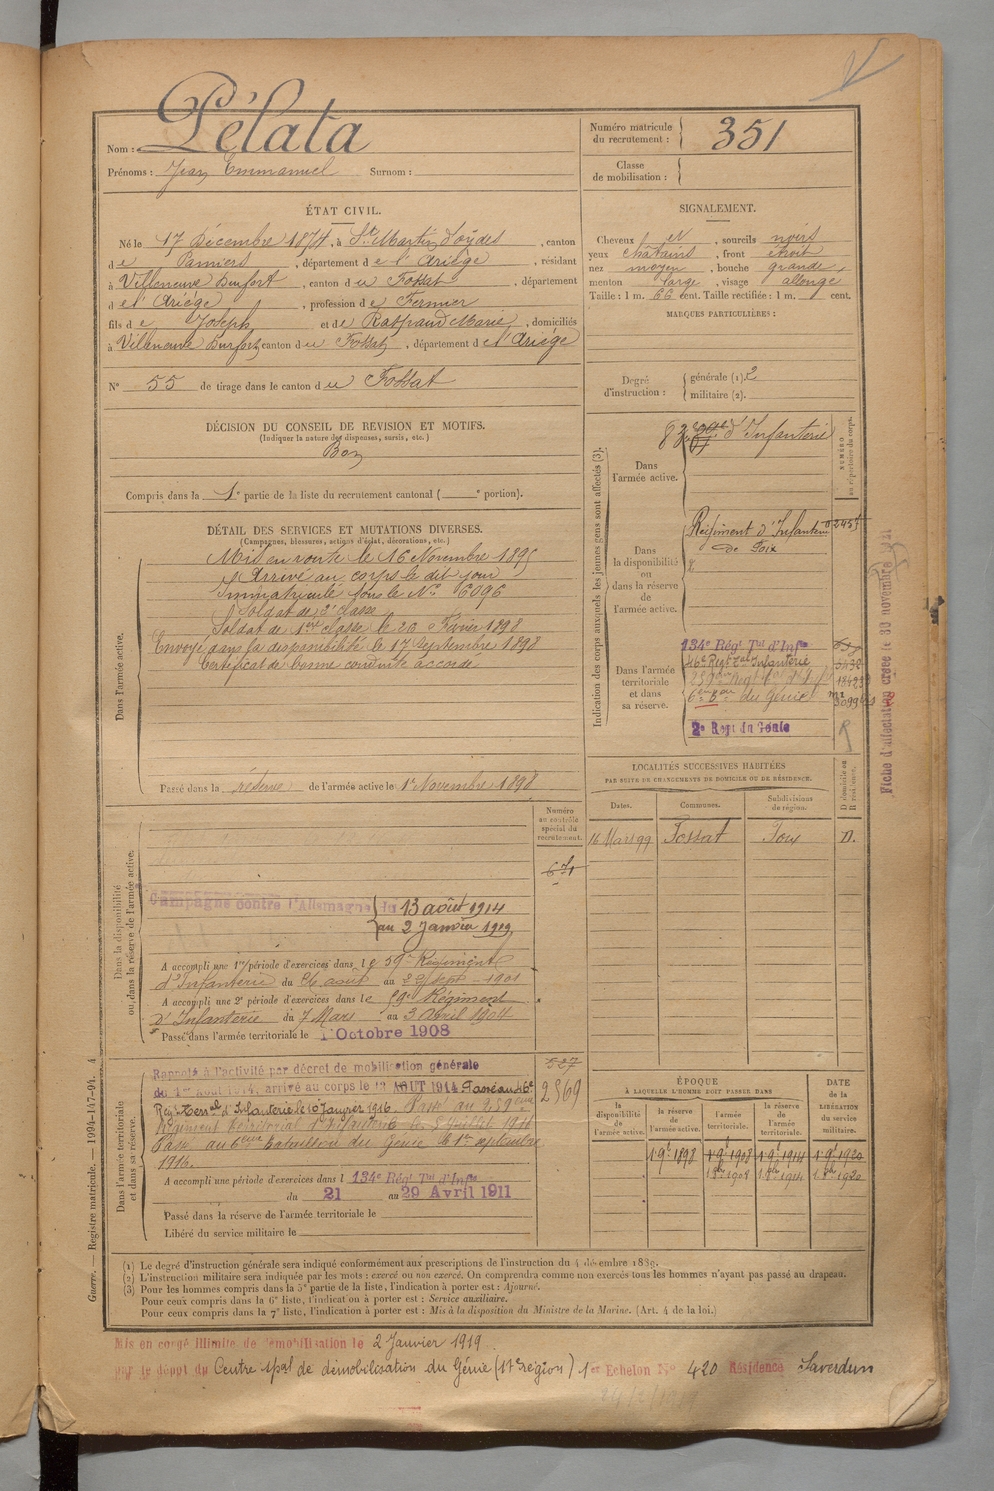 Nom : Pélata
Prénoms : Jean Emmanuel Surnom :
Numéro matricule du recrutement : 351
Classe de mobilisation :
ÉTAT CIVIL.
Né le 17 Décembre 1874, à St Martin d'oydes, canton
de Pamiers, département de l'Ariège, résidant
à Villeneuve Durfort, canton du Fossat, département
de l'Ariège, profession de Fermier
fils de Joseph et de Raspaud Marie, domiciliés
à Villeneuve Durfort, canton du Fossat, département de l'Ariège
N° 55 de tirage dans le canton du Fossat
DÉCISION DU CONSEIL DE RÉVISION ET MOTIFS.
(Indiquer la nature des dispenses, sursis, etc.)
Bon
Compris dans la 1e partie de la liste du recrutement cantonal ( e portion).
SIGNALEMENT.
Cheveux et, sourcils noirs
yeux châtains, front étroit
nez moyen, bouche grande,
menton large, visage allongé
Taille : 1 m. 66 cent. Taille rectifiée : 1 m. cent.
MARQUES PARTICULIÈRES :
Degré d'instruction : générale (1). 2
militaire (2).
DÉTAIL DES SERVICES ET MUTATIONS DIVERSES.
(Campagnes, blessures, actions d'éclat, décorations, etc.)
Dans l'armée active.
Mis en route le 16 Novembre 1895
Arrivé au corps le dit jour
Immatriculé sous le No 6096
Soldat de 2e classe
Soldat de 1ère classe le 20 Février 1898
Envoyé dans la disponibilité le 17 Septembre 1898
Certificat de bonne conduite accordé
Passé dans la réserve de l'armée active le 1er Novembre 1898
Indication des corps auxquels les jeunes gens sont affectés (3).
NUMÉRO au répertoire du corps.
Dans l'armée active.
d'Infanterie
Dans la disponibilité ou dans la réserve de l'armée active.
Régiment d'Infanterie
de Foix
Dans l'armée territoriale et dans sa réserve.
134e Rég. Tal d'Infie
46e Régt Tal Infanterie
6ème Bon du Génie
2e Regt du Génie
Fiche d'affectation créée le 30 novembre
LOCALITÉS SUCCESSIVES HABITÉES
PAR SUITE DE CHANGEMENTS DE DOMICILE OU DE RÉSIDENCE.
Dates. Communes. Subdivisions de région. D domicile ou R résidence.
16 Mars 99 Fossat Foix D.
Dans la disponibilité ou dans la réserve de l'armée active.
Numéro au contrôle spécial du recrutement.
Campagne contre l'Allemagne du 13 août 1914
au 2 Janvier 1919
A accompli une 1re période d'exercices dans le 59e Régiment
d'Infanterie du 26 août au 22 Sept 1901
A accompli une 2e période d'exercices dans le 59e Régiment
d'Infanterie du 7 Mars au 3 Avril 1904
Passé dans l'armée territoriale le 1 Octobre 1908
Dans l'armée territoriale et dans sa réserve.
527
2569
Rappelé à l'activité par décret de mobilisation générale
du 1er Août 1914, arrivé au corps le 13 AOUT 1914 Passé au 46e
Régt Terral d'Infanterie le 10 Janvier 1916. Passé au 259ème
Régiment Territorial d'Infanterie le 8 Juillet 1916
Passé au 6ème Bataillon du Génie le 1er septembre
1916.
A accompli une période d'exercices dans l 134e Rég. Tal d'Infie
du 21 au 29 Avril 1911
Passé dans la réserve de l'armée territoriale le
Libéré du service militaire le
ÉPOQUE
À LAQUELLE L'HOMME DOIT PASSER DANS
DATE DE LA LIBÉRATION du service militaire.
la disponibilité de l'armée active. la réserve de l'armée active. l'armée territoriale. la réserve de l'armée territoriale.
1er 9bre 1898 1er 9bre 1908 1er 9bre 1914 1er 9bre 1920
1er 8bre 1908 1er 8bre 1914 1er 8bre 1920
Guerre. — Registre matricule. — 1994-147-94. A
(1) Le degré d'instruction générale sera indiqué conformément aux prescriptions de l'instruction du 4 décembre 1889.
(2) L'instruction militaire sera indiquée par les mots : exercé ou non exercé. On comprendra comme non exercés tous les hommes n'ayant pas passé au drapeau.
(3) Pour les hommes compris dans la 5e partie de la liste, l'indication à porter est : Ajourné.
Pour ceux compris dans la 6e liste, l'indication à porter est : Service auxiliaire.
Pour ceux compris dans la 7e liste, l'indication à porter est : Mis à la disposition du Ministre de la Marine. (Art. 4 de la loi.)
Mis en congé illimité de démobilisation le 2 Janvier 1919
par le dépôt du Centre spal de démobilisation du Génie (17e région) 1er Echelon No 420 Résidence Saverdun